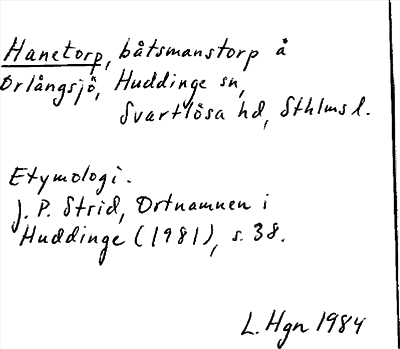 Hanetorp, båtsmanstorp å
Orlångsjö, Huddinge sn,
Svartlösa hd, Sthlms l.
Etymologi.
J. P. Strid, Ortnamnen i
Huddinge (1981), s. 38.
L. Hgn 1984